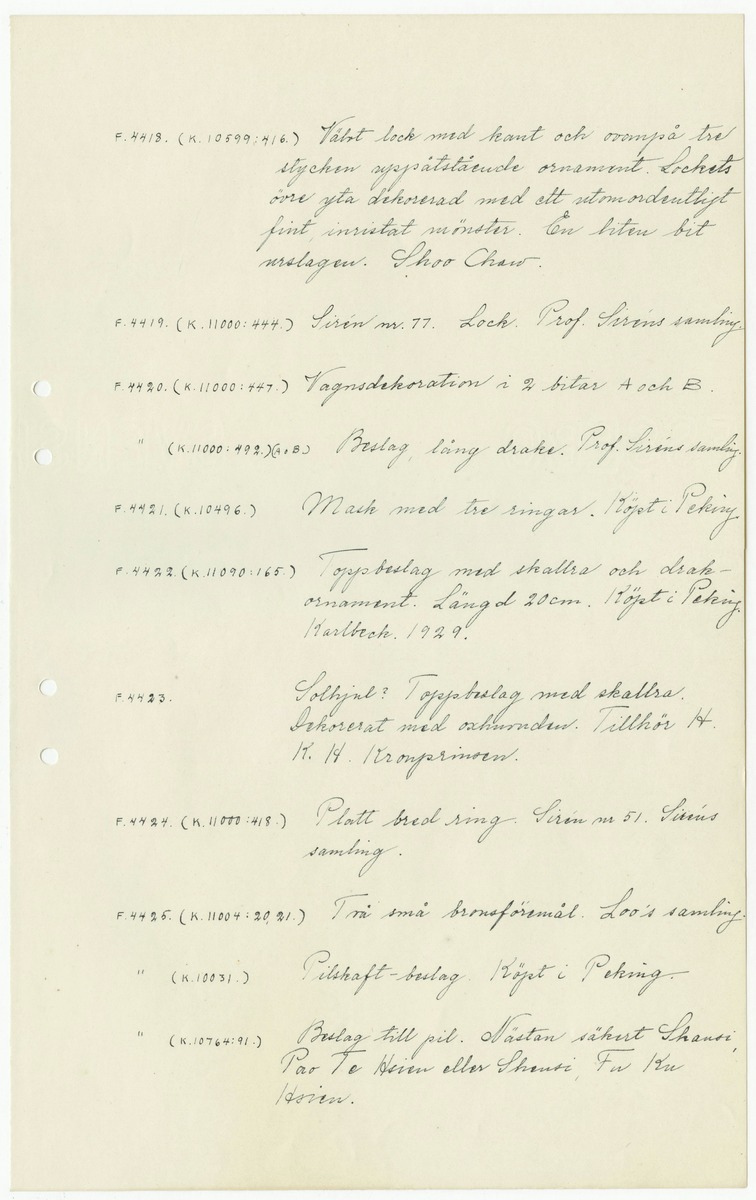 F.4418. (K.10599:416.) Välvt lock med kant och ovanpå tre
stycken uppåtstående ornament. Lockets
övre yta dekorerad med ett utomordentligt
fint, inristat mönster. En liten bit
urslagen. Shoo Chaw.
F.4419. (K.11000:444.) Sirén nr. 77. Lock. Prof. Siréns samling.
F.4420. (K.11000:447.) Vagnsdekoration i 2 bitar A och B.
" (K.11000:492.)(A+B.) Beslag, lång drake. Prof. Siréns samling.
F.4421. (K.10496.) Mask med tre ringar. Köpt i Peking.
F.4422. (K.11090:165.) Toppbeslag med skallra och drak-
ornament. Längd 20cm. Köpt i Peking.
Karlbeck. 1929.
F.4423. Solhjul? Toppbeslag med skallra.
Dekorerat med oxhuvuden. Tillhör H.
K. H. Kronprinsen.
F.4424. (K.11000:418.) Platt bred ring. Sirén nr 51. Siréns
samling.
F.4425. (K.11004:20,21.) Två små bronsföremål. Loo's samling.
" (K.10031.) Pilskaft-beslag. Köpt i Peking.
" (K.10764:91.) Beslag till pil. Nästan säkert Shansi,
Pao Te Hsien eller Shensi, Fu Ku
Hsien.